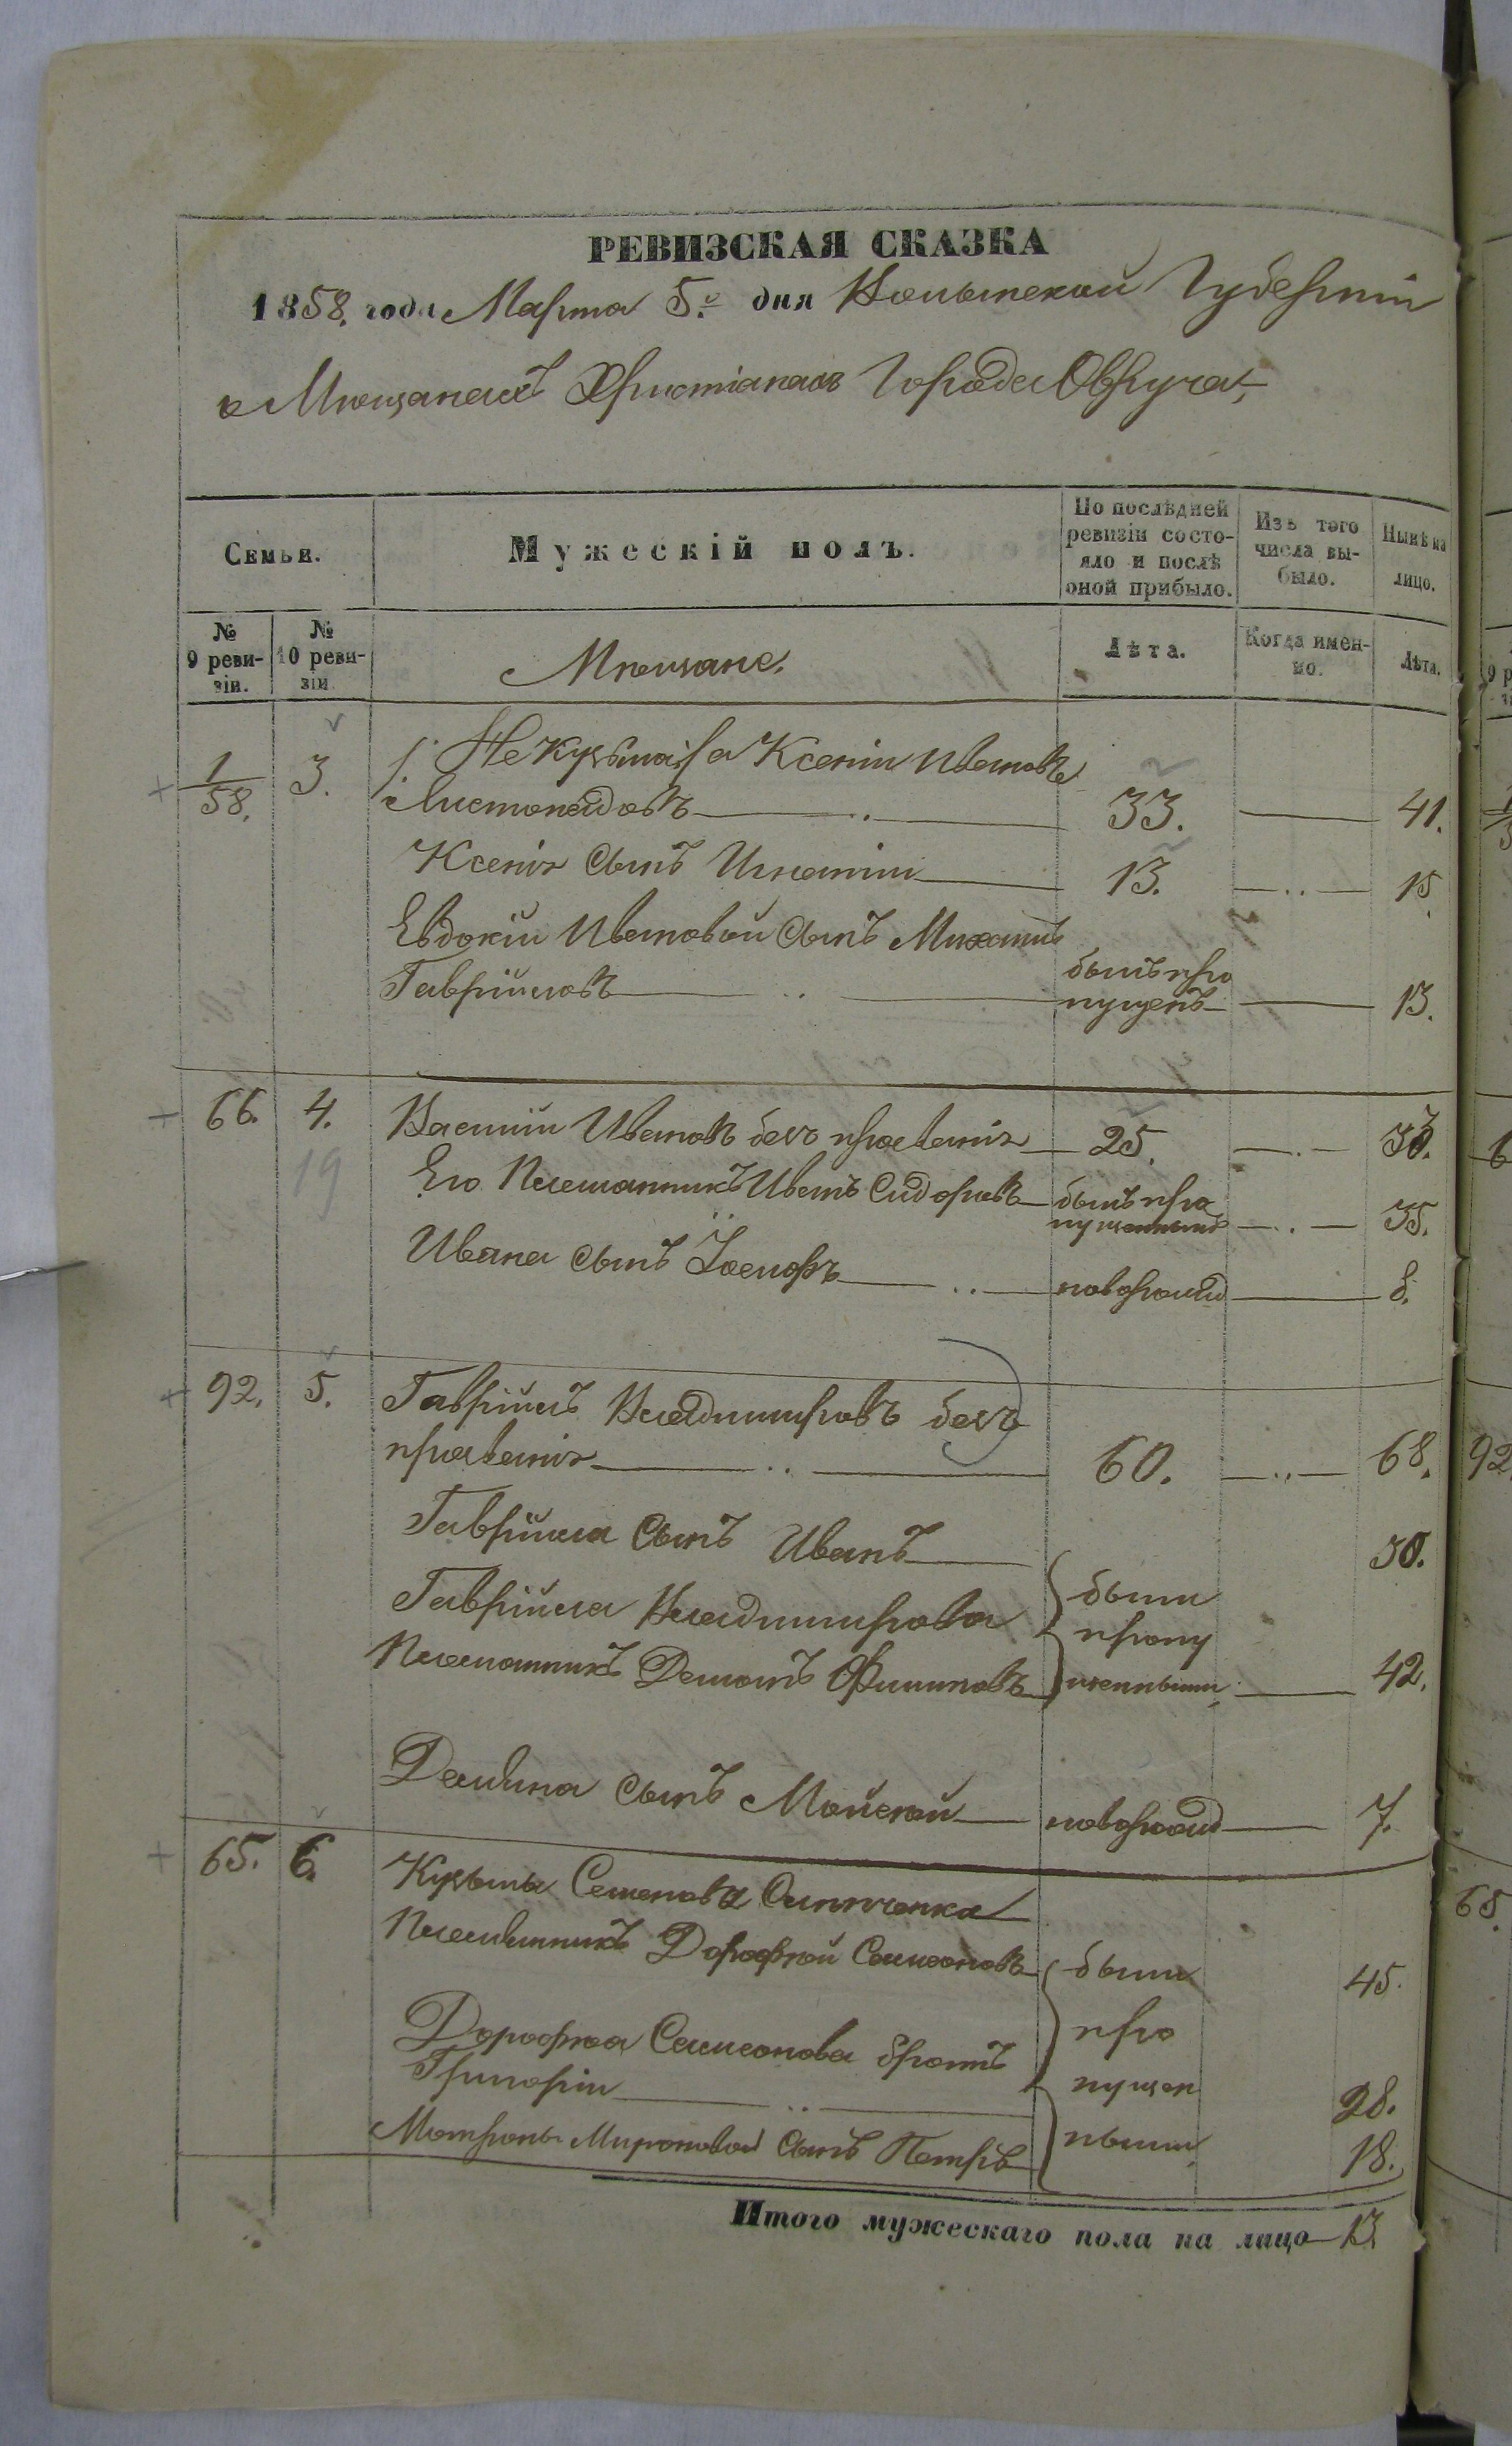 РЕВИЗСКАЯ СКАЗКА
1858. года Марта 5.го дня Волынской Губерніи
о Мѣщанахъ Христіанахъ Города Овруча,
Семьи.
Мужескій полъ.
По послѣдней ревизіи состо-
яло и послѣ
оной прибыло.
Изъ того
числа вы-
было.
Нынѣ на
лицо.
№
9 реви-
зіи.
№
10 реви-
зіи.
Мѣщане.
Лѣта.
Когда имен-
но.
Лѣта.
1/58. 3. Ксенія Иванова
Листопадовъ 33. 41.
Ксенія сынъ Игнатій 13. 15
Евдокіи Ивановой сынъ Михаилъ
Гавріиловъ былъ про
пущенъ 13.
66. 4. Василій Ивановъ безъ прозванія 25. 33.
19
Его Племянникъ Иванъ Сидоровъ былъ про
пущеннымъ 35.
Ивана сынъ новорожд 8.
92. 5. Гавріилъ Владимировъ безъ
прозванія 60. 68.
Гавріила сынъ Иванъ 30.
Гавріила Владимирова были
пропу
Племянникъ Демьянъ Филиповъ щенными 42.
Демьяна сынъ Мойсей новорожд 7.
65. 6. Кузьмы Семенова
Племянникъ Дорофей Самсоновъ были 45.
Дорофея Самсонова братъ про
Григорій пущен 28.
Матроны Мироновой сынъ Петръ ными 18.
Итого мужескаго пола на лицо 13